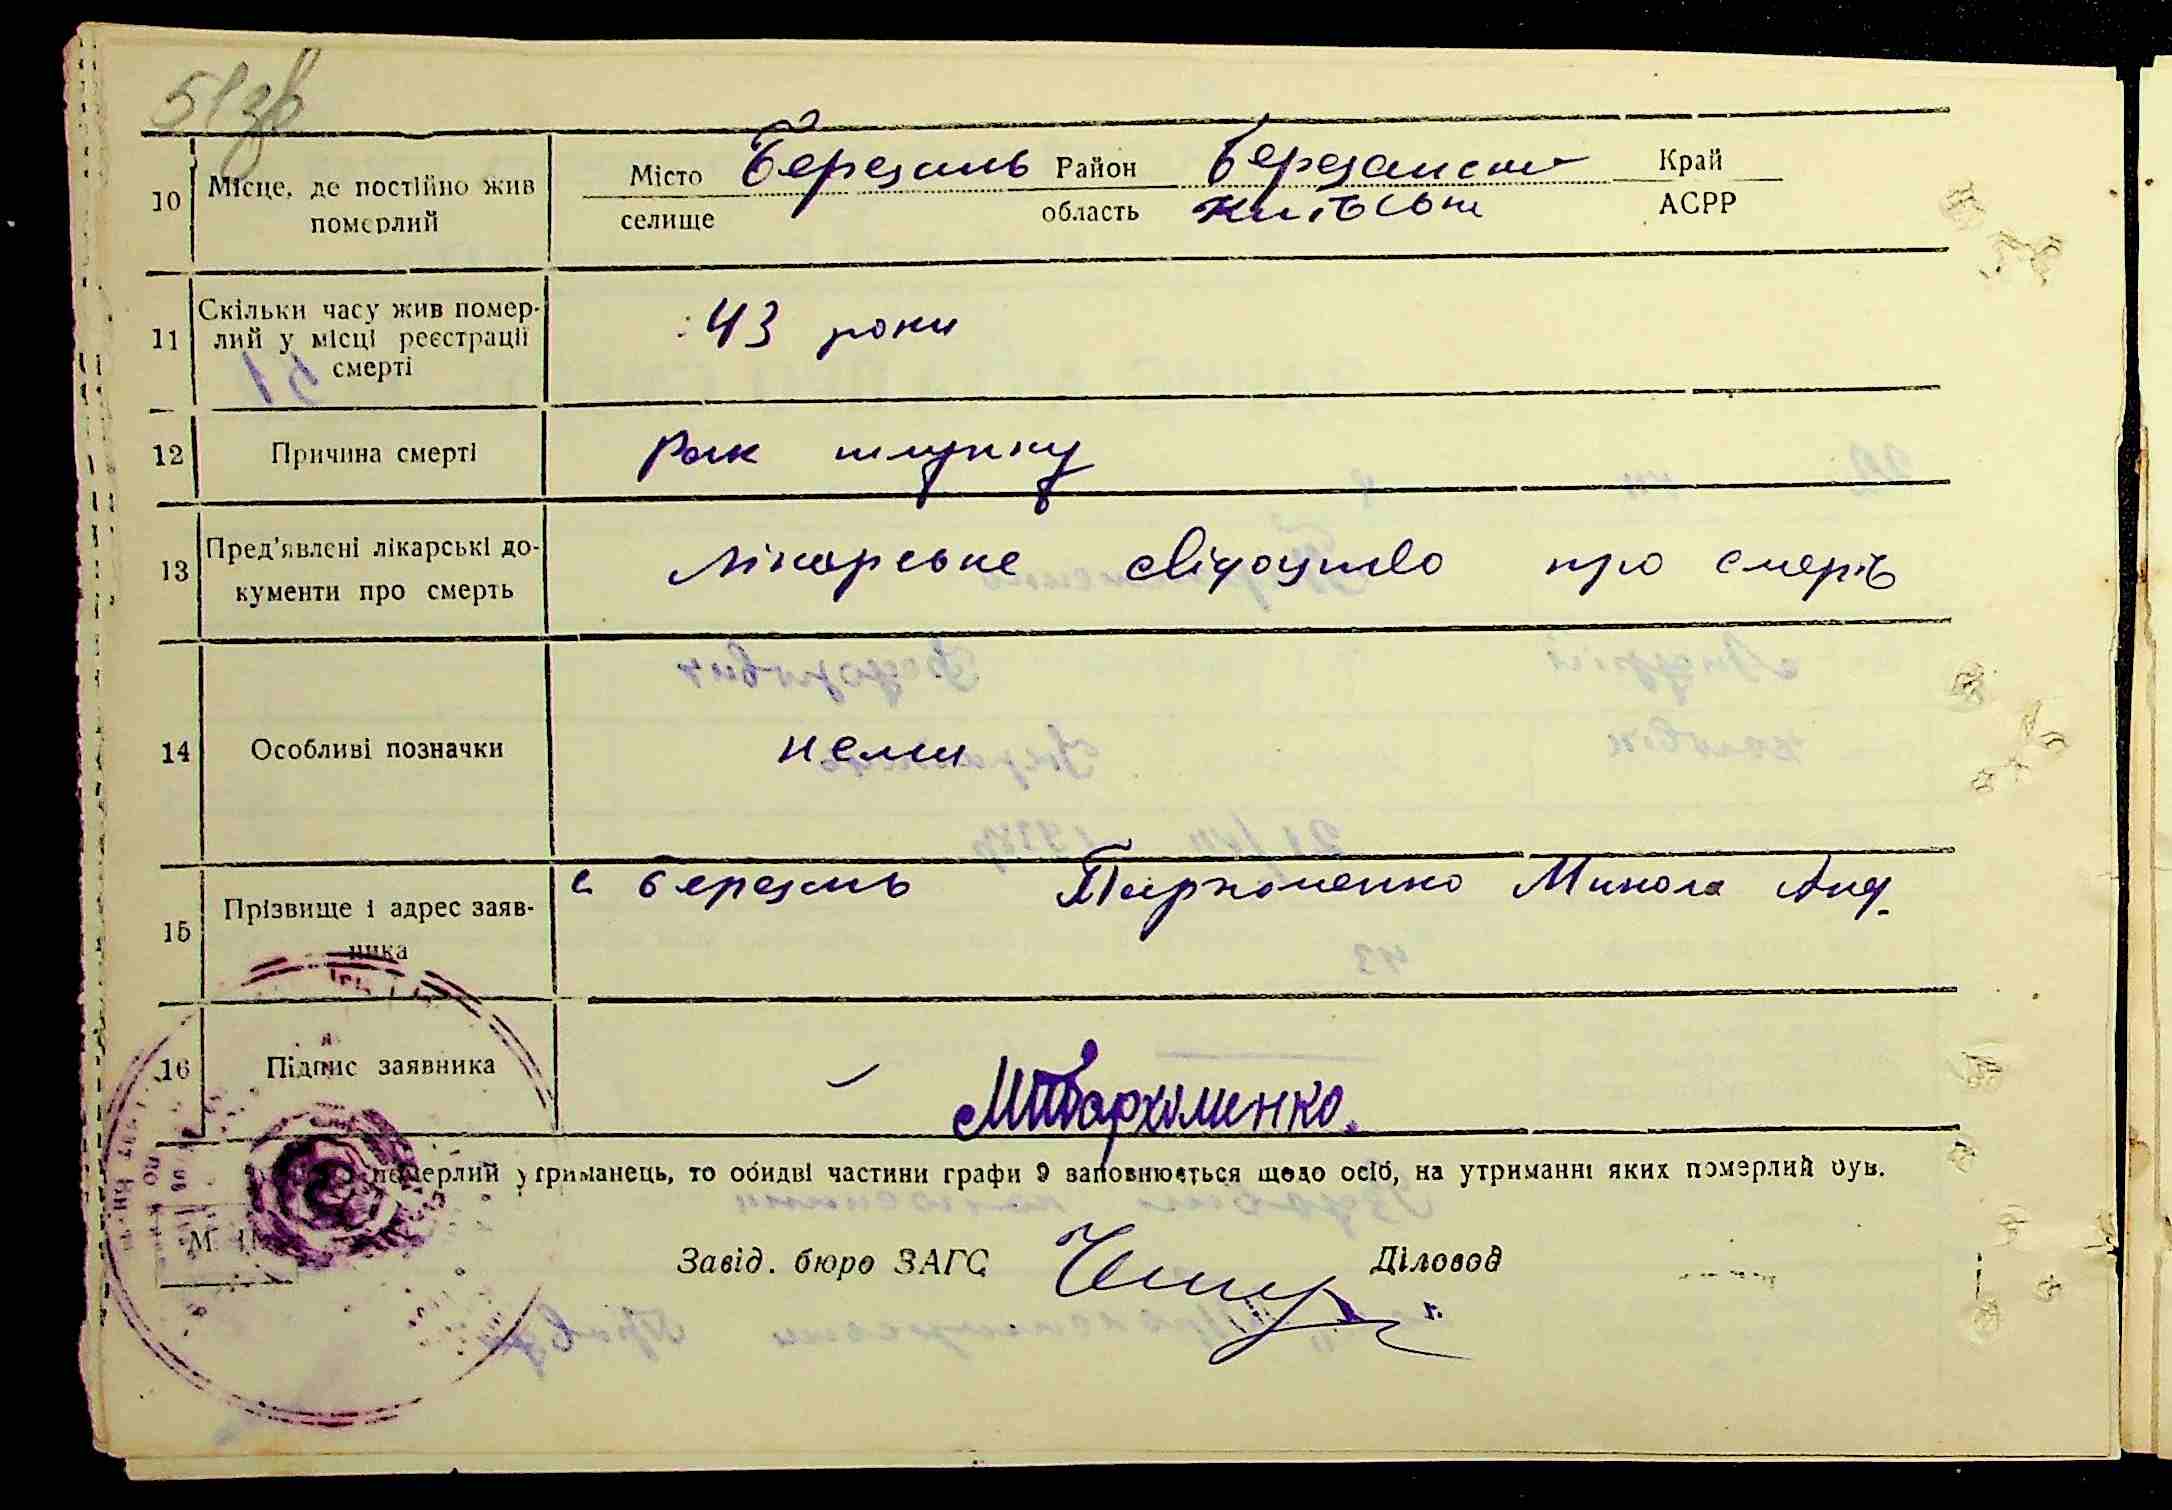 51зв
10 Місце, де постійно жив померлий
Місто Березань Район Березанськ Край
селище область Київська АСРР
11 Скільки часу жив помер-
лий у місці реєстрації
смерті
43 роки
12 Причина смерті Рак шлунку
13 Пред'явлені лікарські до-
кументи про смерть
лікарське свідоцтво про смерть
14 Особливі позначки нема
15 Прізвище і адрес заяв-
ника
с Березань Пархоменко Микола Анд.
16 Підпис заявника МПархоменко.
померлий утриманець, то обидві частини графи 9 заповнюється щодо осіб, на утриманні яких померлий був.
М. П.
Завід. бюро ЗАГС Діловод